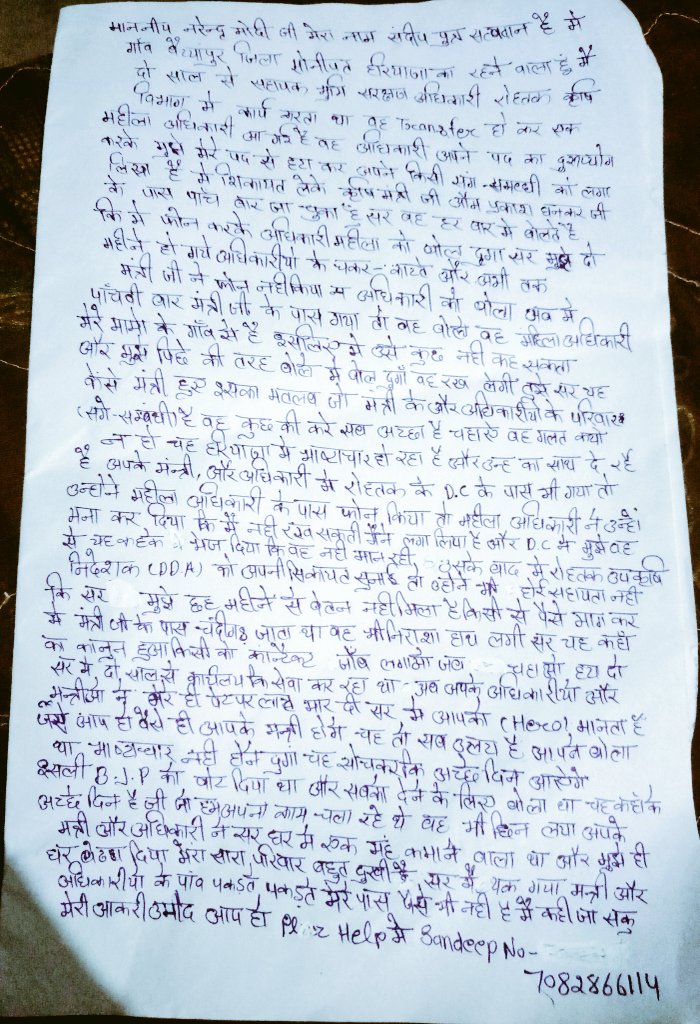 माननीय नरेन्द्र मोदी जी मेरा नाम संदीप पुत्र सत्यवान है मै
गाँव बैय्यापुर जिला सोनीपत हरियाणा का रहने वाला हुं मै
दो साल से सहायक भुमि सरक्षण अधिकारी रोहतक कृषि
विभाग मे कार्य करता था वह Transfer हो कर एक
महीला अधिकारी आ गई है वह अधिकारी अपने पद का दुरूपयोग
करके मुझे मेरे पद से हटा कर अपने किसी सगे-सम्बधी को लगा
लिया है मै शिकायत लेके कृषि मंत्री जी औम प्रकाश धनकर जी
के पास पाँच बार जा चुका है सर वह हर बार मे बोलते है
कि मे फोन करके अधिकारी महीला को बोल दुगा सर मुझे दो
महीने हो गये अधिकारीयो के चकर-काटते और अभी तक
मंत्री जी ने फोन नही किया अधिकारी को बोला अब मे
पाँचवी बार मंत्री जी के पास गया तो वह बोले वह महिला अधिकारी
मेरे मामा के गाँव से है इसलिए मे उसे कुछ नही कह सकता
और मुझे पिछे की तरह बोले मे बोल दुगाँ वह रख लेगी तुझे सर यह
कैसे मंत्री हुए इसका मतलब जो मंत्री के और अधिकारीयो के परिवार
(सगे-सम्बधी) है वह कुछ की करे सब अच्छा है चहाए वह गलत क्यो
न हो यह हरियाणा मे भ्रष्टाचार हो रहा है और उन्ह का साथ दे रहे
है अपके मन्त्री, और अधिकारी मे रोहतक के D.C के पास भी गया तो
उन्होने महीला अधिकारी के पास फोन किया तो महीला अधिकारी ने उन्हे
मना कर दिया कि मै नही रख सकती मैने लगा लिया है और D.C ने मुझे वह
से यह कहके भेज दिया कि वह नही मान रही उसके बाद मे रोहतक उप कृषि
निदेशक (DDA) को अपनी सिकायत सुनाई तो उहोने भी कोई सहायता नही
कि सर मुझे छह महीने से वेतन नही मिला है किसी से पैसे माग कर
मे मंत्री जी के पास चंदीगढ जाता था वह भी निराशा हाथ लगी सर यह कहाँ
का कानून हुआ किसी को जोब लगाओ जब चहाओ हटा दो
सर मे दो साल से कार्यलय कि सेवा कर रहा था अब अपके अधिकारीयो और
मन्त्रीओ ने मेरे ही पेट पर लात मार दी सर मे आपको (Hero) मानता है
जैसे आप हो वैसे ही आपके मन्त्री होगे यह तो सब उलटा है आपने बोला
था भ्रष्टाचार नही होने दुगा यह सोचकर कि अच्छे दिन आएगे
इसली B.J.P को वोट दिया था और सबको देने के लिए बोला था यह कहाँ के
अच्छे दिन है जी जो हम अपना काम चला रहे थे वह भी छिन लया अपके
मंत्री और अधिकारी ने सर घर मे एक मह कमाने वाला था और मुझे ही
घर बेठा दिया मेरा सारा परिवार बहुत दुखी है सर मै थक गया मन्त्री और
अधिकारीयो के पांव पकड़ते पकड़ते मेरे पास पैसे भी नही है मै कही जा सकु
मेरी आकरी उमीद आप हो Help मे Sandeep No-
7082866114